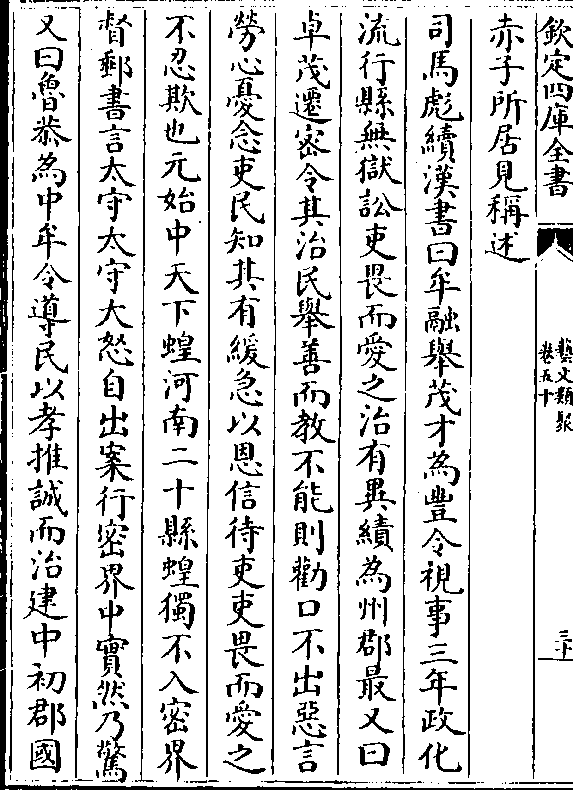 欽定四庫全書
藝文類聚
卷五十
三十
赤子所居見稱述
司馬彪續漢書曰牟融舉茂才為豐令視事三年政化
流行縣無獄訟吏畏而愛之治有異績為州郡最又曰
卓茂遷密令其治民舉善而教不能則勸口不出惡言
勞心憂念吏民知其有緩急以恩信待吏吏畏而愛之
不忍欺也元始中天下蝗河南二十縣蝗獨不入密界
督郵書言太守太守大怒自出案行密界中實然乃驚
又曰魯恭為中牟令導民以孝推誠而治建中初郡國